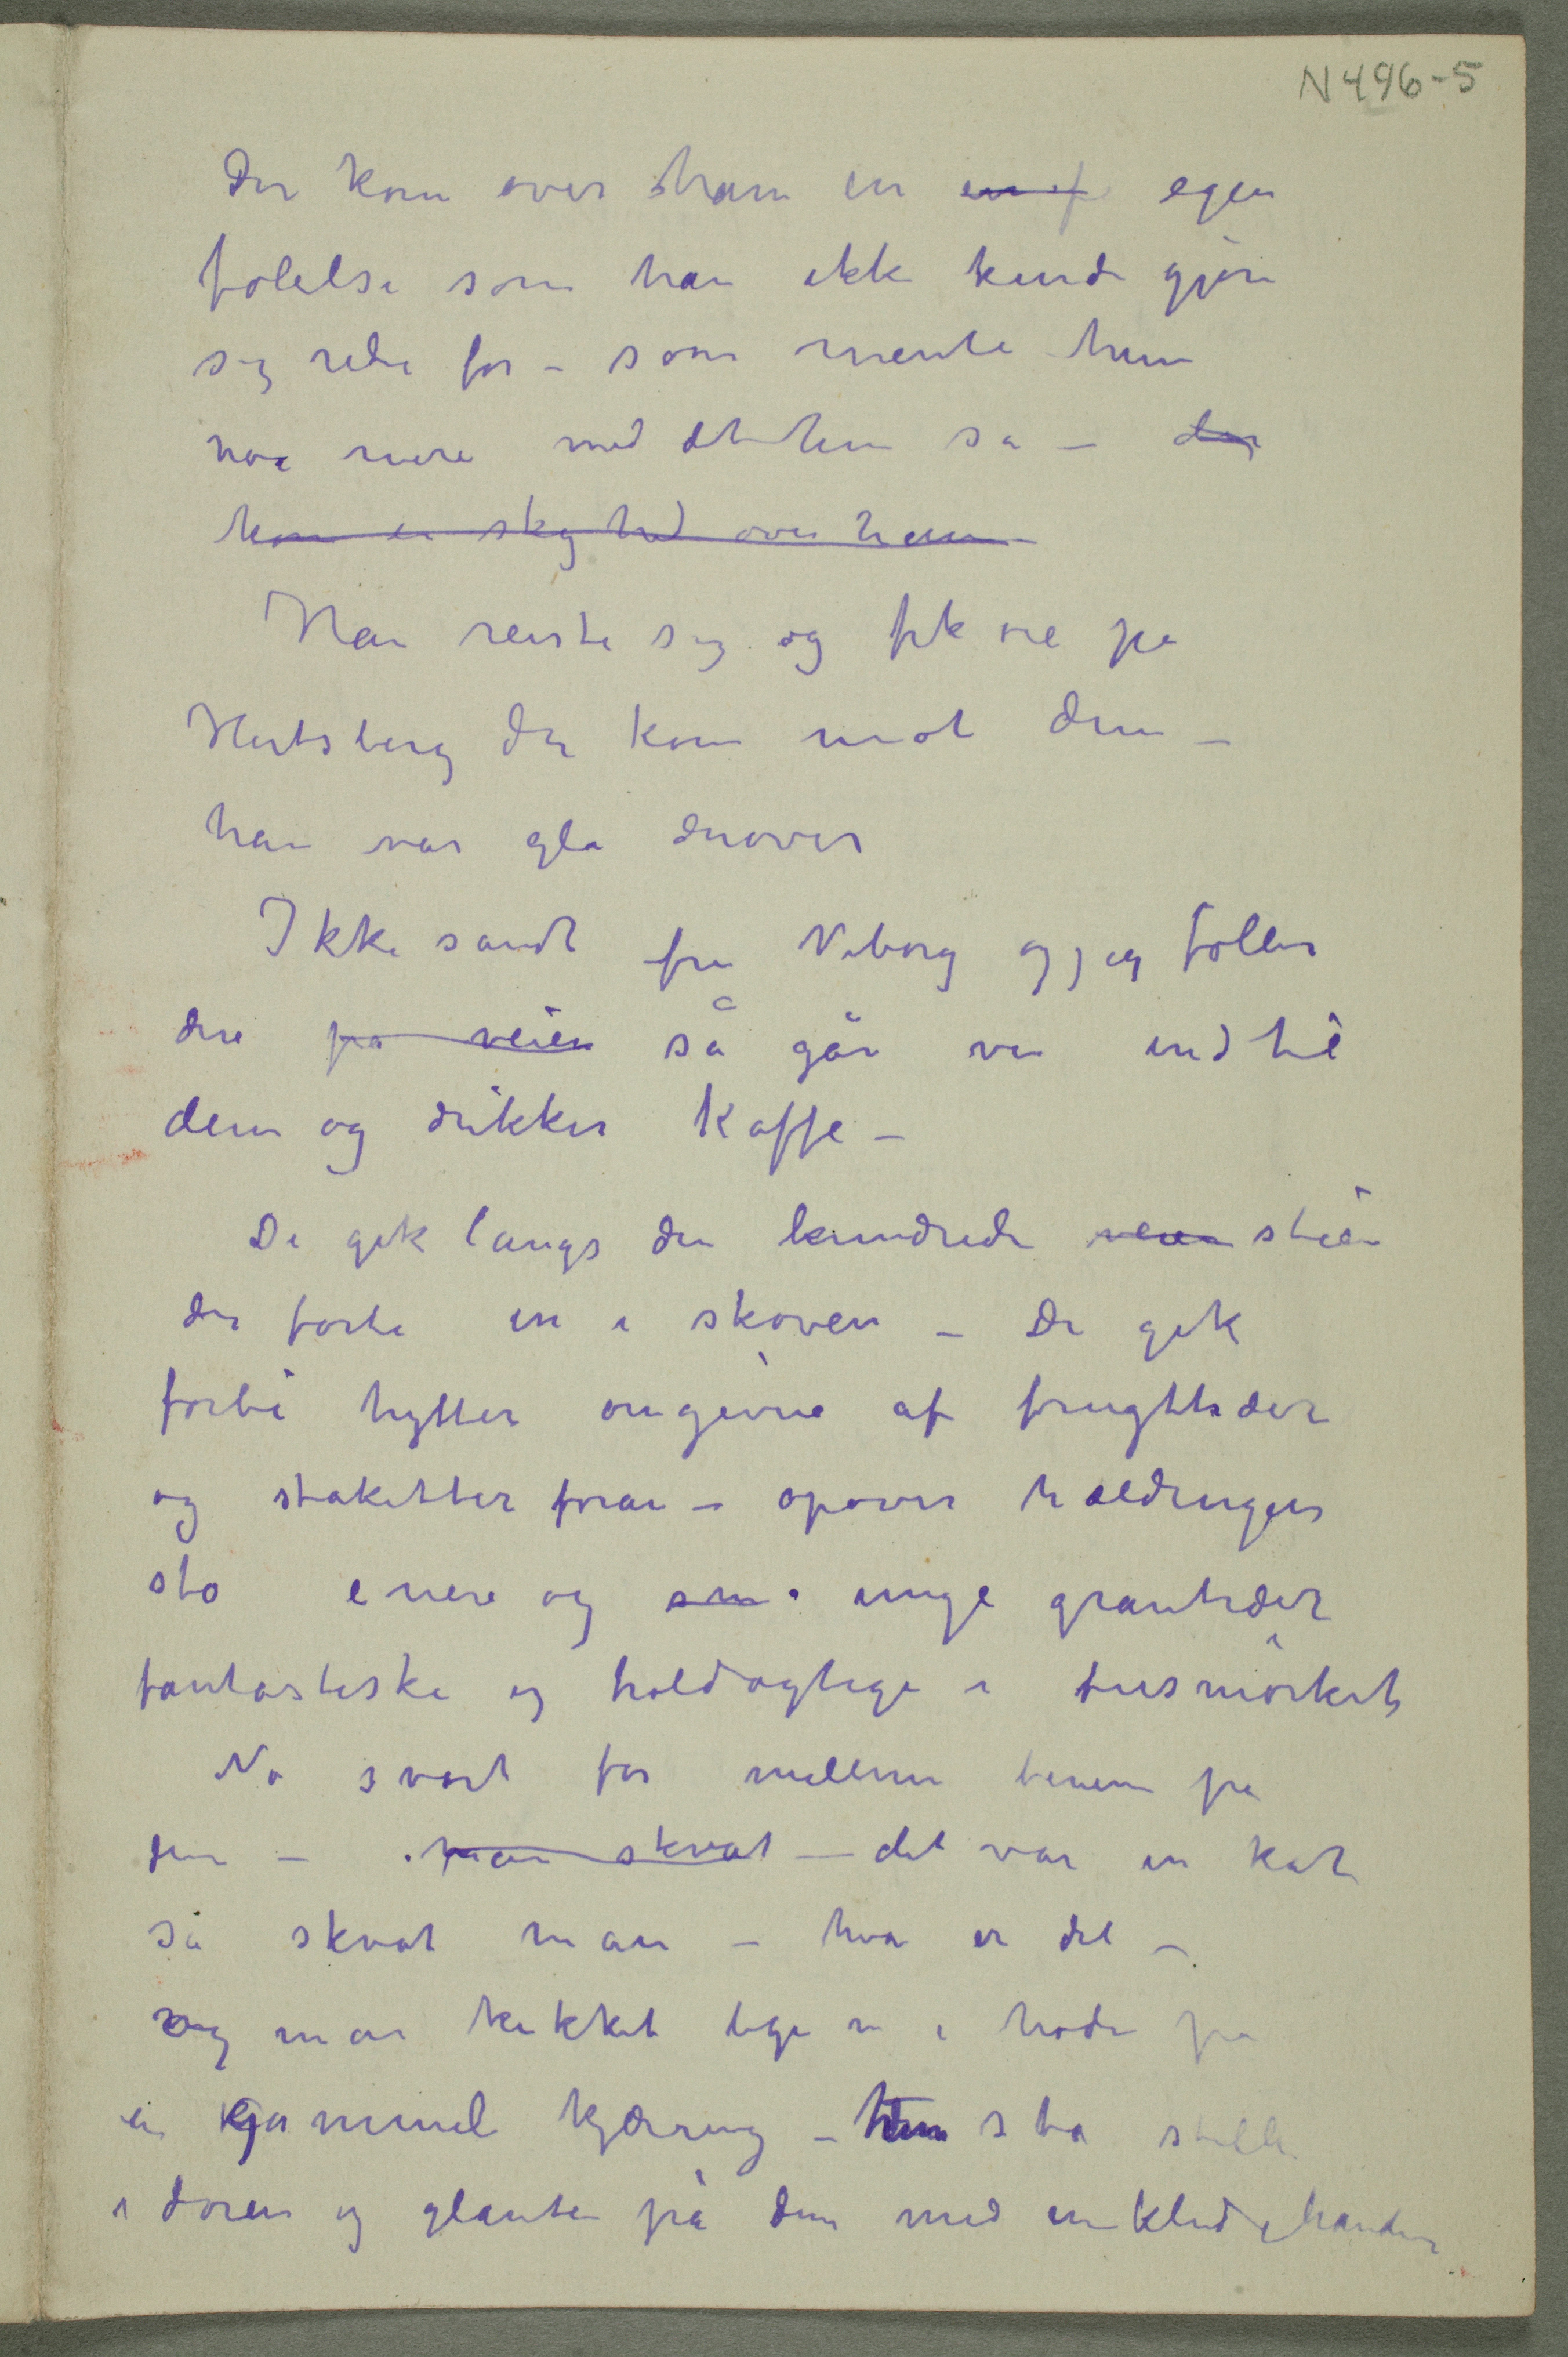 N496-5
Der kom over ham en en f egen
følelse som han ikke kunde gjøre
sig rede for – som mente hun
noe mere med det hun sa – der
kom en skyhed over ham –
Han reiste sig og fik øie på
Hertsberg der kom mot dem –
han var gla derover
Ikke sandt fru Viborg og jeg følller
dere på veien så går vi ind til
dem og drikker Kaffe –
De gik langs den lumdrede veien stien
der førte in i skoven – De gik
forbi hytter omgivne af frugttrær
og staketter foran – opover hældingen
sto enere og små unge grantrær
fantastiske og troldagtige i tusmørket
No svart for mellem benene på
dem – man skvat – det var en kat
så skvat man – hva er det –
og man kikket lige in i hode på
en gammel kjærring – Hun sto stille
i døren og glante på dem med en klud i hånden